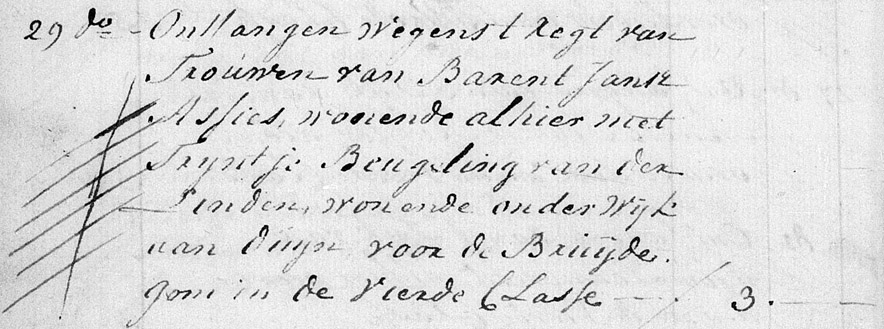 29 do - Ontfangen wegens t Regt van
Trouwen van Barent Jansz
Assies, wonende alhier met
Tryntje Beugeling van der
Linden, wonende onder Wijk
aan Duyn, voor de Bruijde.
gom in de Vierde Classe — 3.—